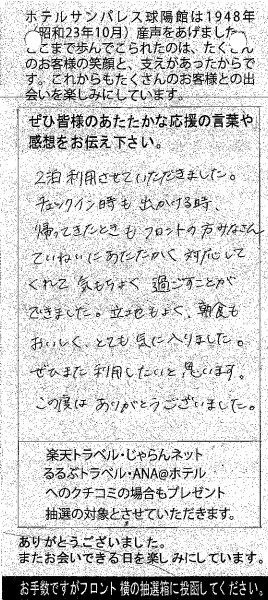 ホテルサンパレス球陽館は1948年
(昭和23年10月)産声をあげました
ここまで歩んでこられたのは、たくさん
のお客様の笑顔と、支えがあったからで
す。これからもたくさんのお客様との出
会いを楽しみにしています。
ぜひ皆様のあたたかな応援の言葉や
感想をお伝え下さい。
2泊利用させていただきました。
チェックイン時も出かける時、
帰ってきたときもフロントの方みなさん
ていねいにあたたかく対応して
くれて気もちよく過ごすことが
できました。立地もよく、朝食も
おいしく、とても気に入りました。
ぜひまた利用したいと思います。
この度はありがとうございました。
楽天トラベル・じゃらんネット
るるぶトラベル・ANA@ホテル
へのクチコミの場合もプレゼント
抽選の対象とさせていただきます。
ありがとうございました。
またお会いできる日を楽しみにしています。
お手数ですがフロント横の抽選箱に投函してください。